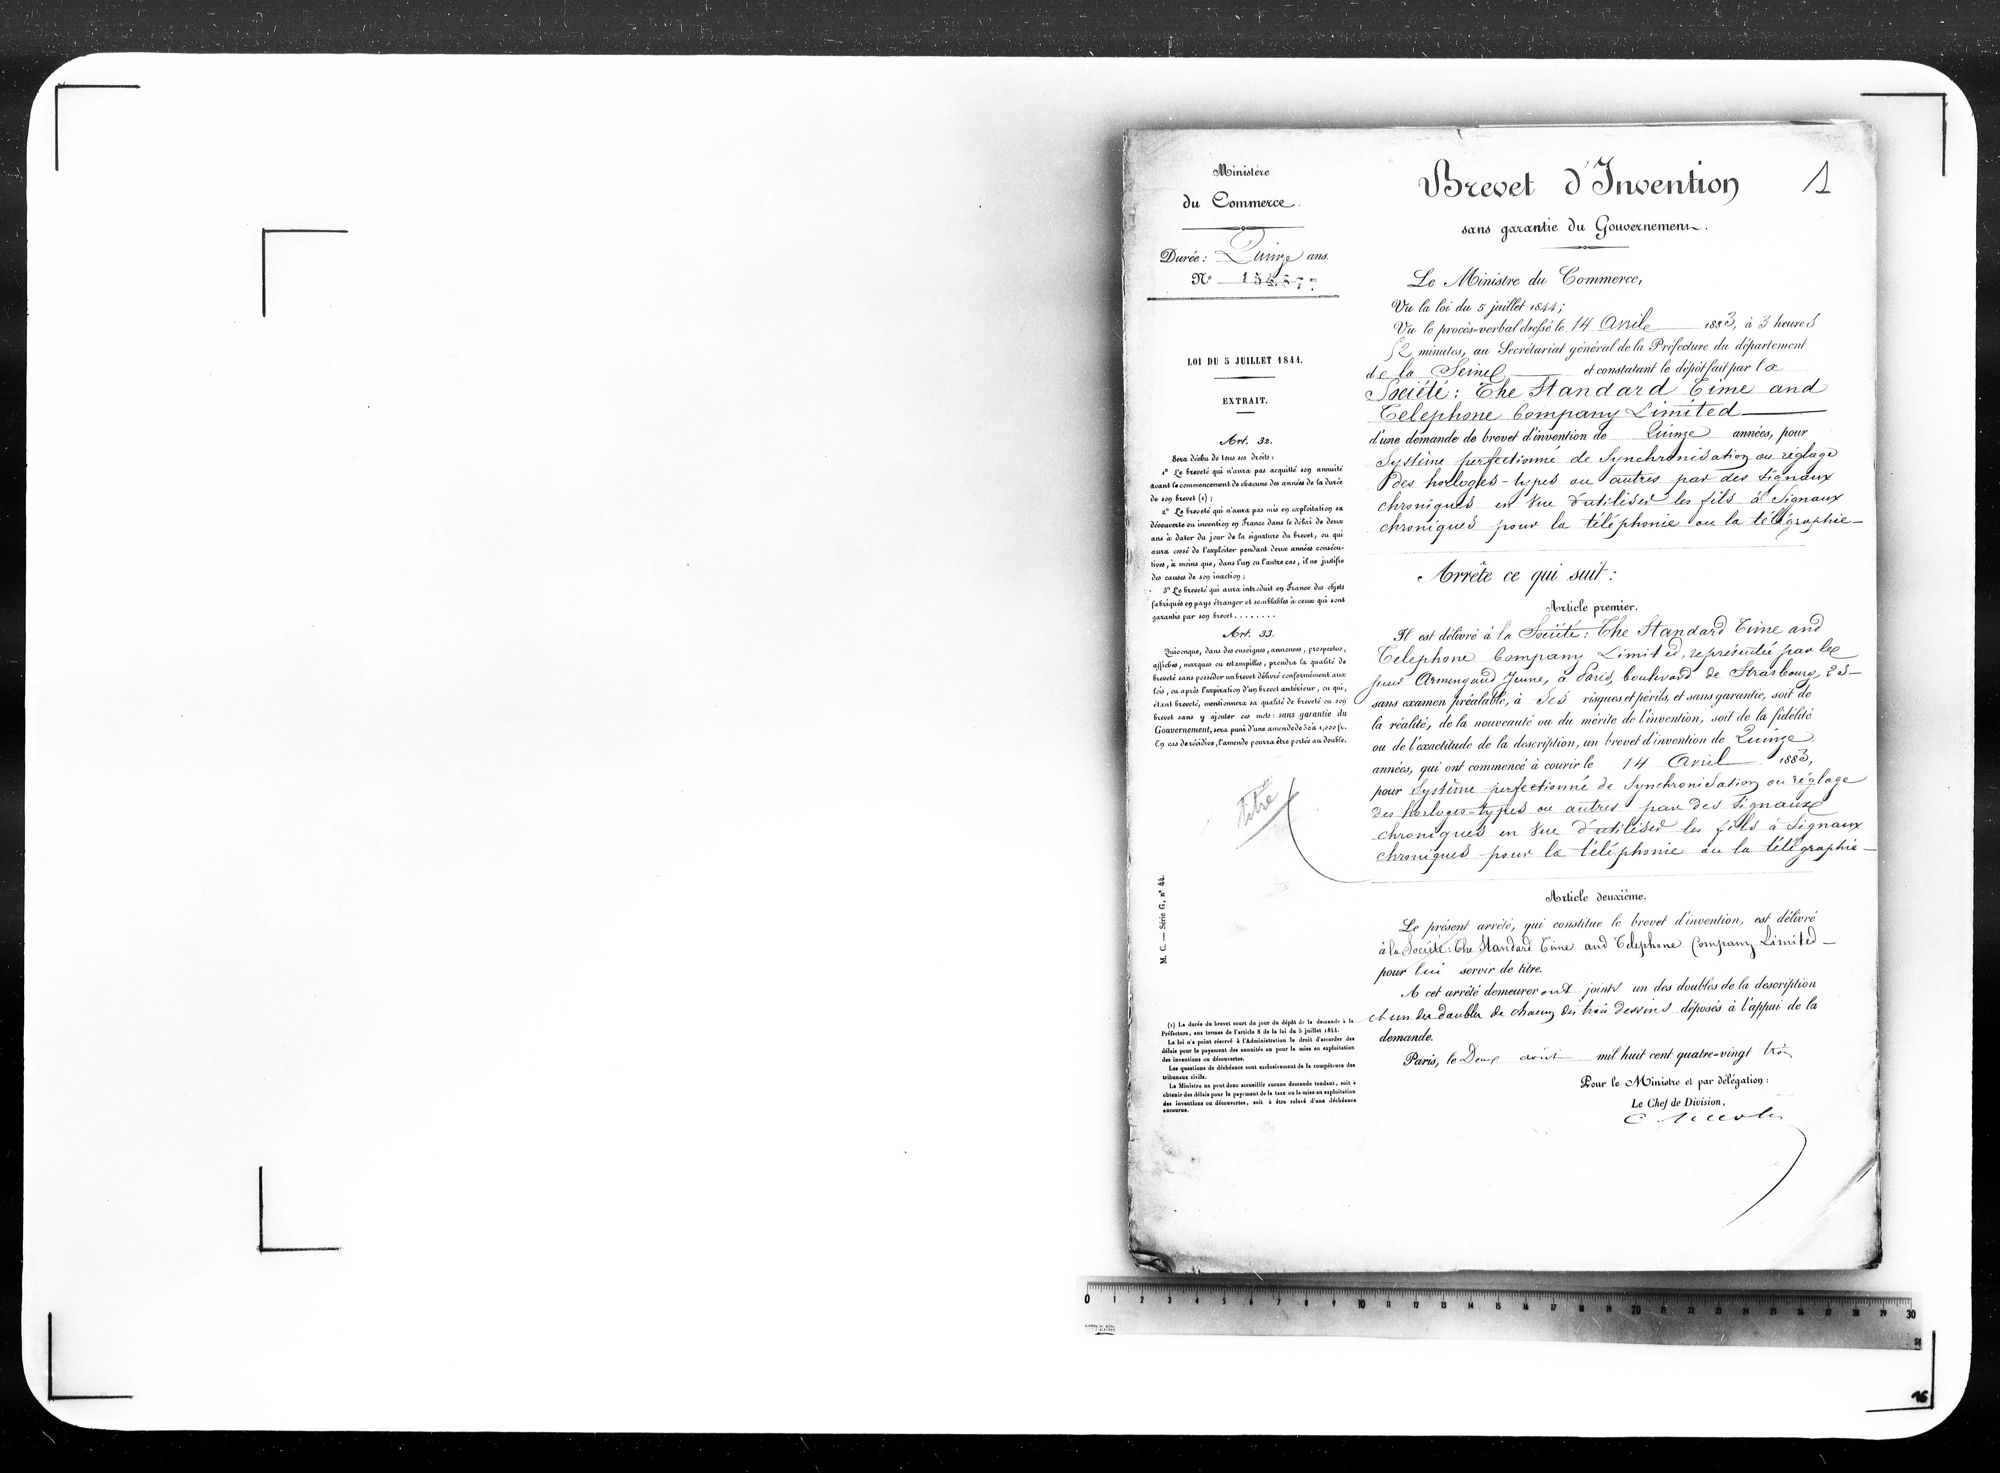 Ministère
du Commerce.
Durée: Quinze ans.
N° 154,877
LOI DU 5 JUILLET 1844.
EXTRAIT.
Art. 32.
Sera déchu de tous ses droits :
1° Le breveté qui n'aura pas acquitté son annuité
avant le commencement de chacune des années de la durée
de son brevet (1) ;
2° Le breveté qui n'aura pas mis en exploitation sa
découverte ou invention en France dans le délai de deux
ans à dater du jour de la signature du brevet, ou qui
aura cessé de l'exploiter pendant deux années consécu-
tives, à moins que, dans l'un ou l'autre cas, il ne justifie
des causes de son inaction ;
3° Le breveté qui aura introduit en France des objets
fabriqués en pays étranger et semblables à ceux qui sont
garantis par son brevet........
Art. 33.
Quiconque, dans des enseignes, annonces, prospectus,
affiches, marques ou estampilles, prendra la qualité de
breveté sans posséder un brevet délivré conformément aux
lois, ou après l'expiration d'un brevet antérieur, ou qui,
étant breveté, mentionnera sa qualité de breveté ou son
brevet sans y ajouter ces mots : sans garantie du
Gouvernement, sera puni d'une amende de 50 à 1,000 fr.
En cas de récidive, l'amende pourra être portée au double.
Titre
M. C. — Série G, n° 44.
(1) La durée du brevet court du jour du dépôt de la demande à la
Préfecture, aux termes de l'article 8 de la loi du 5 juillet 1844.
La loi n'a point réservé à l'Administration le droit d'accorder des
délais pour le payement des annuités ou pour la mise en exploitation
des inventions ou découvertes.
Les questions de déchéance sont exclusivement de la compétence des
tribunaux civils.
Le Ministre ne peut donc accueillir aucune demande tendant, soit à
obtenir des délais pour le payement de la taxe ou la mise en exploitation
des inventions ou découvertes, soit à être relevé d'une déchéance
encourue.
Brevet d'Invention 1
sans garantie du Gouvernement.
Le Ministre du Commerce,
Vu la loi du 5 juillet 1844 ;
Vu le procès-verbal dressé le 14 Avril 1883, à 3 heures
52 minutes, au Secrétariat général de la Préfecture du département
de la Seine et constatant le dépôt fait par la
Société : The Standard Time and
Telephone Company Limited
d'une demande de brevet d'invention de Quinze années, pour
Système perfectionné de synchronisation ou réglage
des horloges-types ou autres par des signaux
chroniques en vue d'utiliser les fils à signaux
chroniques pour la téléphonie ou la télégraphie
Arrête ce qui suit :
Article premier.
Il est délivré à la Société : The Standard Time and
Telephone Company Limited, représentée par les
sieurs Armengaud Jeune, à Paris, boulevard de Strasbourg, 23
sans examen préalable, à ses risques et périls, et sans garantie, soit de
la réalité, de la nouveauté ou du mérite de l'invention, soit de la fidélité
ou de l'exactitude de la description, un brevet d'invention de Quinze
années, qui ont commencé à courir le 14 Avril 1883,
pour Système perfectionné de synchronisation ou réglage
des horloges-types ou autres par des signaux
chroniques en vue d'utiliser les fils à signaux
chroniques pour la téléphonie ou la télégraphie
Article deuxième.
Le présent arrêté, qui constitue le brevet d'invention, est délivré
à la Société : The Standard Time and Telephone Company Limited
pour lui servir de titre.
A cet arrêté demeureront joints un des doubles de la description
et un des doubles de chacun des trois dessins déposés à l'appui de la
demande.
Paris, le Deux août mil huit cent quatre-vingt trois
Pour le Ministre et par délégation :
Le Chef de Division,
0 1 2 3 4 5 6 7 8 9 10 11 12 13 14 15 16 17 18 19 20 21 22 23 24 25 26 27 28 29 30
16